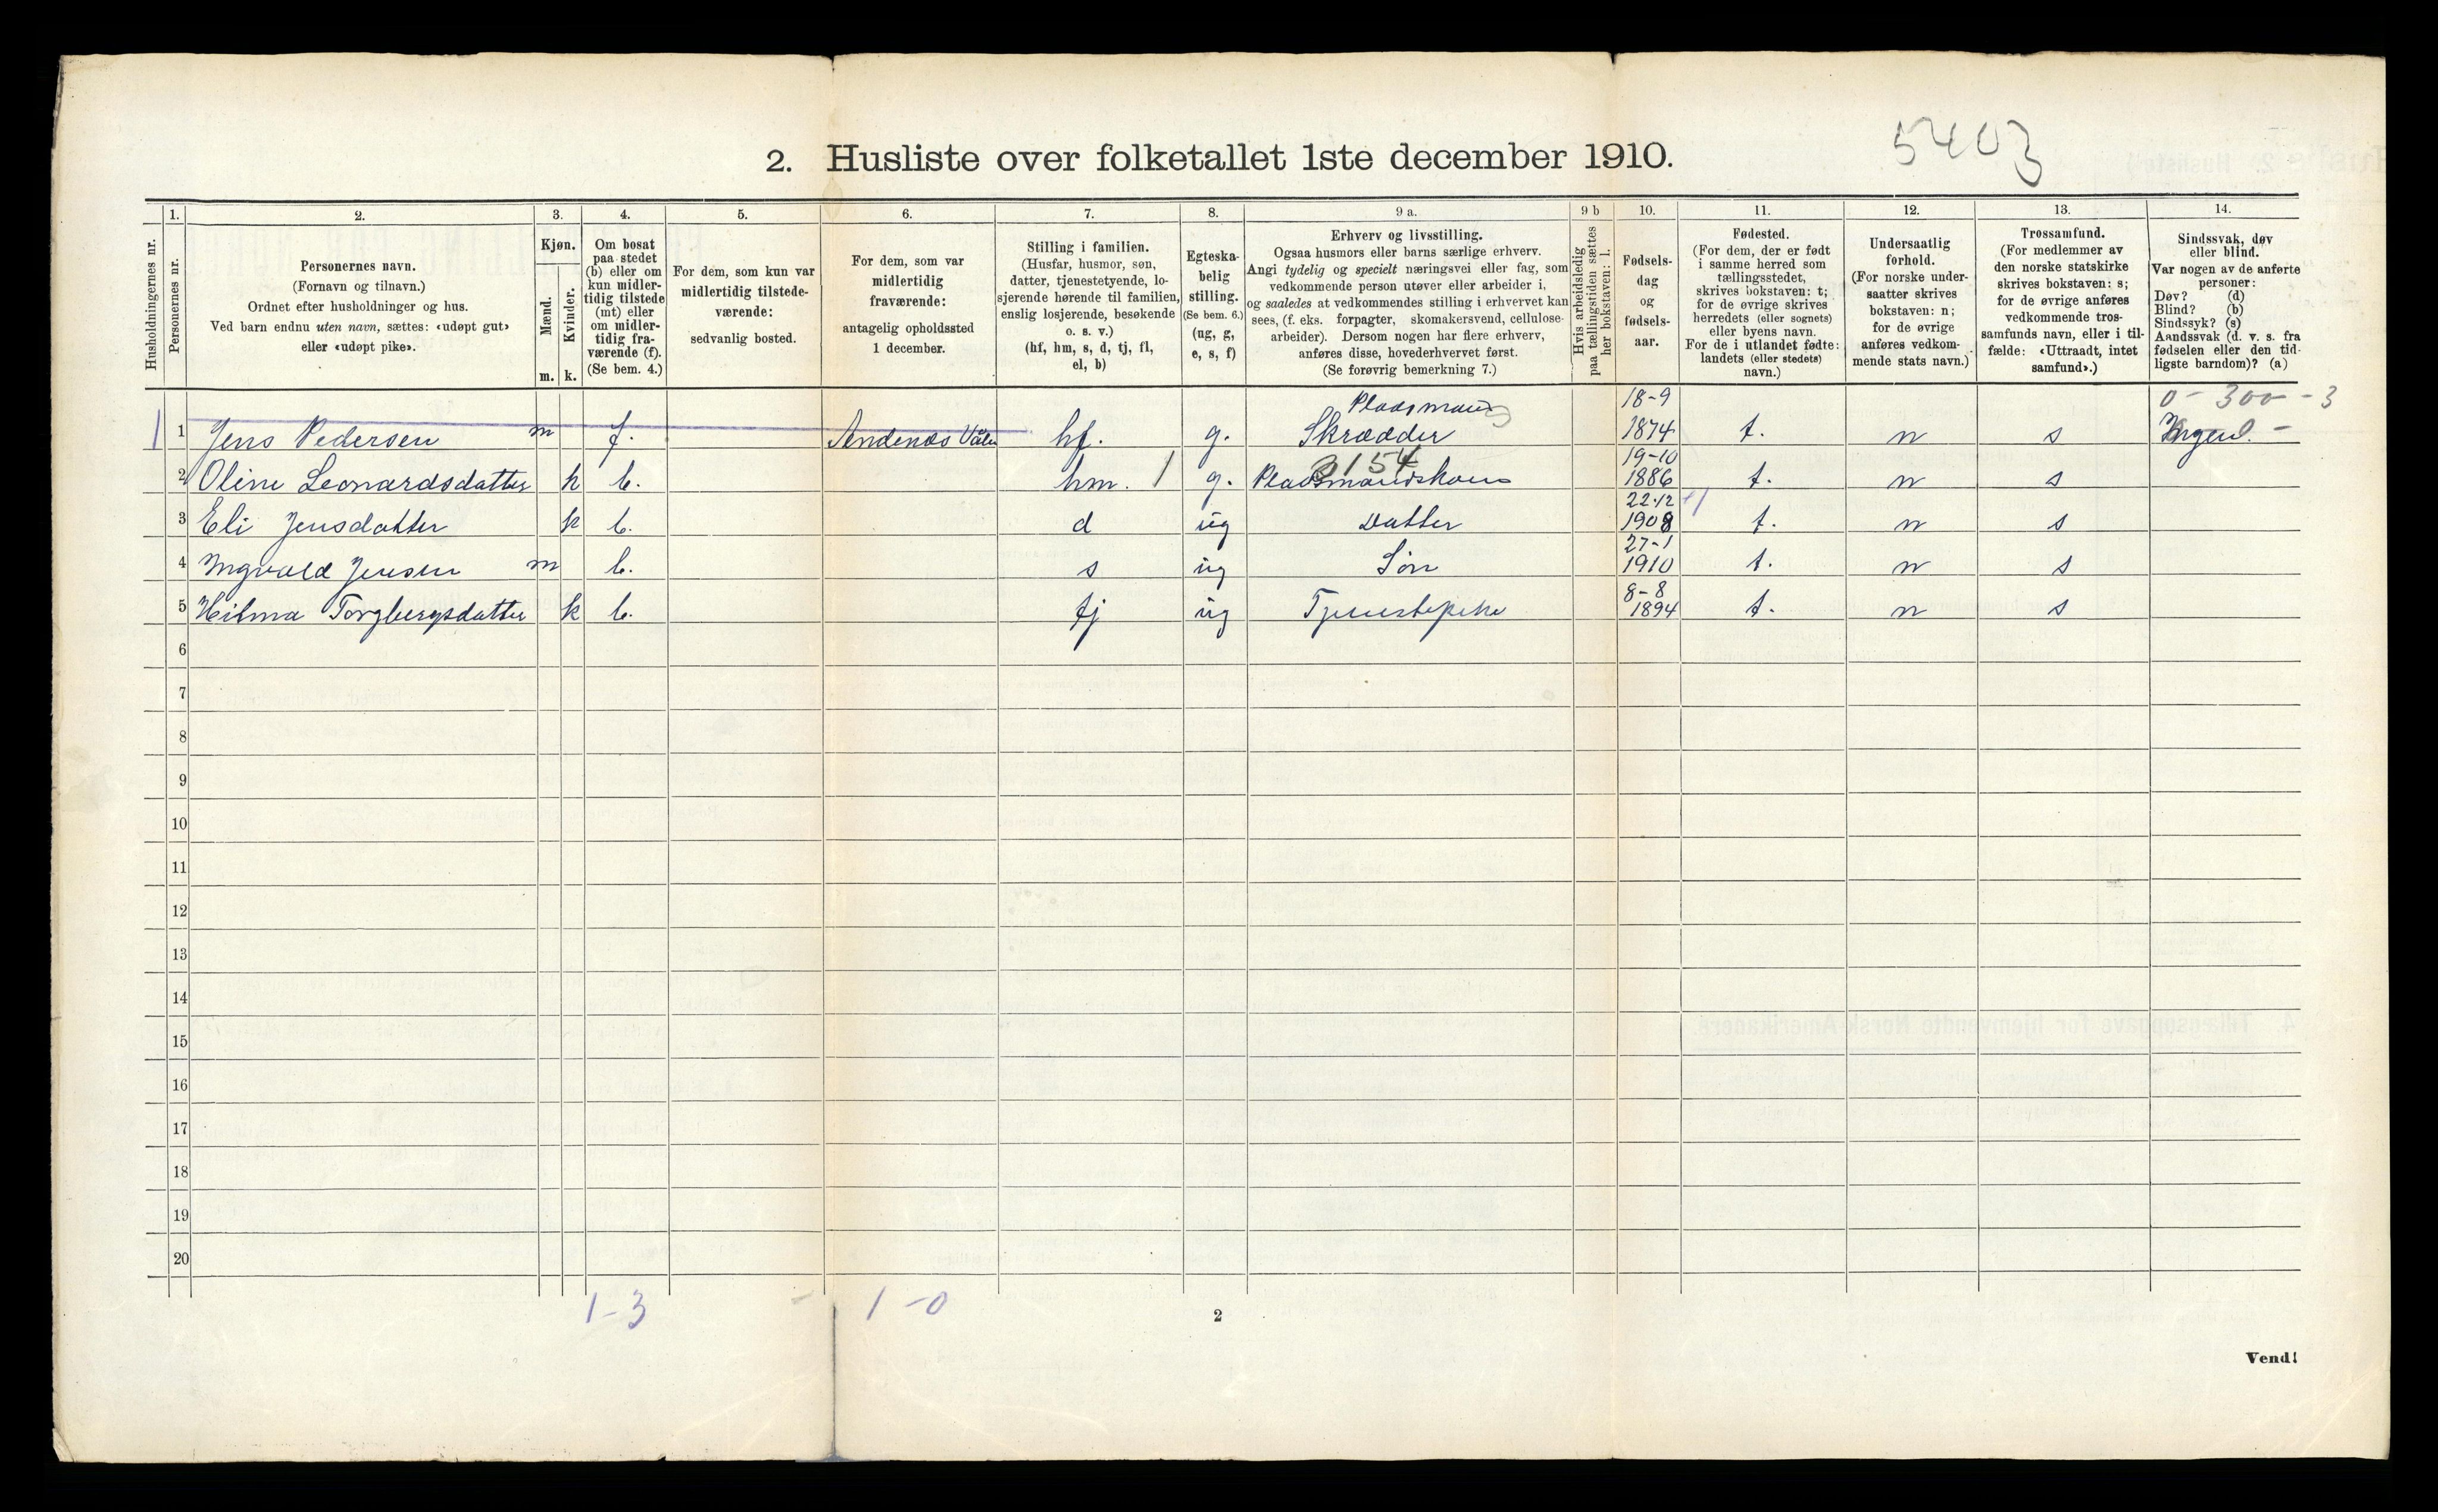 5403
2. Husliste over folketallet 1ste december 1910.
Husholdningernes nr.
1. Personernes nr.
2. Personernes navn.
(Fornavn og tilnavn.)
Ordnet efter husholdninger og hus.
Ved barn endnu uten navn, sættes: «udøpt gut»
eller «udøpt pike».
3. Kjøn.
Mænd. m.
Kvinder. k.
4. Om bosat
paa stedet
(b) eller om
kun midler-
tidig tilstede
(mt) eller
om midler-
tidig fra-
værende (f).
(Se bem. 4.)
5. For dem, som kun var
midlertidig tilstede-
værende:
sedvanlig bosted.
6. For dem, som var
midlertidig
fraværende:
antagelig opholdssted
1 december.
7. Stilling i familien.
(Husfar, husmor, søn,
datter, tjenestetyende, lo-
sjerende hørende til familien,
enslig losjerende, besøkende
o. s. v.)
(hf, hm, s, d, tj, fl,
el, b)
8. Egteska-
belig
stilling.
(Se bem. 6.)
(ug, g,
e, s, f)
9 a. Erhverv og livsstilling.
Ogsaa husmors eller barns særlige erhverv.
Angi tydelig og specielt næringsvei eller fag, som
vedkommende person utøver eller arbeider i,
og saaledes at vedkommendes stilling i erhvervet kan
sees, (f. eks. forpagter, skomakersvend, cellulose-
arbeider). Dersom nogen har flere erhverv,
anføres disse, hovederhvervet først.
(Se forøvrig bemerkning 7.)
9 b Hvis arbeidsledig
paa tællingstiden sættes
her bokstaven: l.
10. Fødsels-
dag
og
fødsels-
aar.
11. Fødested.
(For dem, der er født
i samme herred som
tællingsstedet,
skrives bokstaven: t;
for de øvrige skrives
herredets (eller sognets)
eller byens navn.
For de i utlandet fødte:
landets (eller stedets)
navn.)
12. Undersaatlig
forhold.
(For norske under-
saatter skrives
bokstaven: n;
for de øvrige
anføres vedkom-
mende stats navn.)
13. Trossamfund.
(For medlemmer av
den norske statskirke
skrives bokstaven: s;
for de øvrige anføres
vedkommende tros-
samfunds navn, eller i til-
fælde: «Uttraadt, intet
samfund».)
14. Sindssvak, døv
eller blind.
Var nogen av de anførte
personer:
Døv? (d)
Blind? (b)
Sindssyk? (s)
Aandssvak (d. v. s. fra
fødselen eller den tid-
ligste barndom)? (a)
Pladsmand 18-9 0-300-3
1 1 Jens Pedersen m f. Andenes hf. g. Skrædder 1874 t. n s Ingen. -
0154 19-10
2 Oline Leonardsdatter k b. hm. 1 g. Pladsmandskone 1886 t. n s
22-12
3 Eli Jensdatter k b. d ug Datter 1908 t. n s
27-1
4 Ingvald Jensen m b. s ug Søn 1910 t. n s
8-8
5 Hilma Torgbergsdatter k b. tj ug Tjenestepike 1894 t. n s
6
7
8
9
10
11
12
13
14
15
16
17
18
19
20
1-3 1-0
2
Vend!